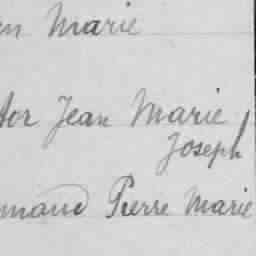 en Marie
tor Jean Marie
Joseph
mand Pierre Marie